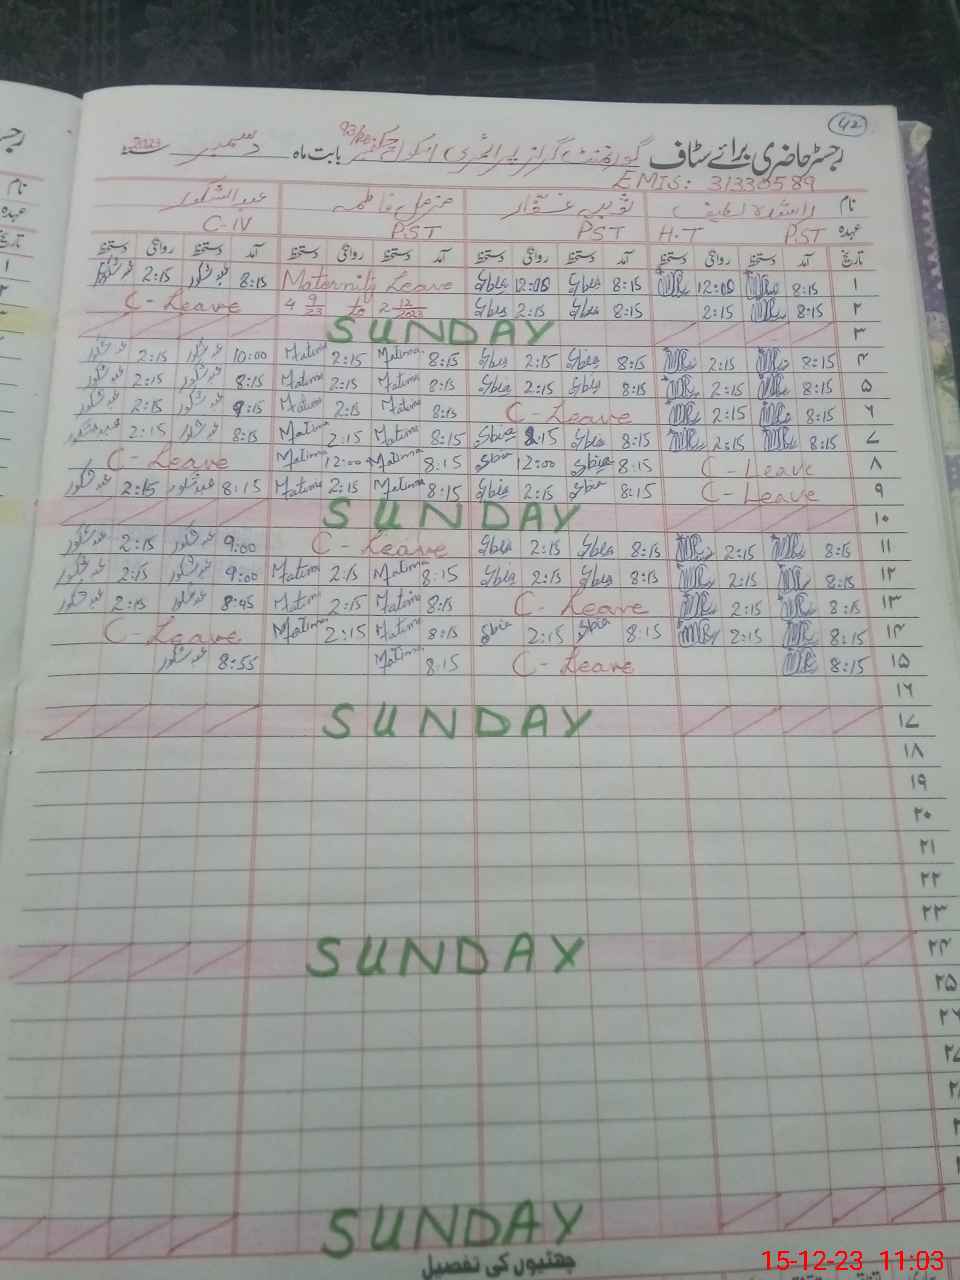 42
رجسٹر حاضری برائے سٹاف گورنمنٹ گرلز پرائمری سکول چک نمبر 93/ بابت ماہ دسمبر سنہ 2023
EMIS: 31330589
نام راشدہ لطیف مزمل فاطمہ عبدالشکور
عہدہ P.ST H.T PST P.ST C-IV
تاریخ آمد دستخط روانگی دستخط آمد دستخط روانگی دستخط آمد دستخط روانگی دستخط آمد دستخط روانگی دستخط
۱ 8:15 12:00 8:15 Sbia 12:00 Sbia Maternity Leave 8:15 عبدشکور 2:15 عبدشکور
۲ 8:15 2:15 8:15 Sbia 2:15 Sbia 4 9/23 to 2 12/2023 C-Leave
۳ SUNDAY
۴ 8:15 2:15 8:15 Sbia 2:15 Sbia 8:15 Fatima 2:15 Fatima 10:00 عبدشکور 2:15 عبدشکور
۵ 8:15 2:15 8:15 Sbia 2:15 Sbia 8:15 Fatima 2:15 Fatima 8:15 عبدشکور 2:15 عبدشکور
۶ 8:15 2:15 C-Leave 8:15 Fatima 2:15 Fatima 9:15 عبدشکور 2:15 عبدشکور
۷ 8:15 2:15 8:15 Sbia 2:15 Sbia 8:15 Fatima 2:15 Fatima 8:15 عبدشکور 2:15 عبدشکور
۸ C-Leave 8:15 Sbia 12:00 Sbia 8:15 Fatima 12:00 Fatima C-Leave
۹ C-Leave 8:15 Sbia 2:15 Sbia 8:15 Fatima 2:15 Fatima 8:15 عبدشکور 2:15 عبدشکور
۱۰ SUNDAY
۱۱ 8:15 2:15 8:15 Sbia 2:15 Sbia C-Leave 9:00 عبدشکور 2:15 عبدشکور
۱۲ 8:15 2:15 8:15 Sbia 2:15 Sbia 8:15 Fatima 2:15 Fatima 9:00 عبدشکور 2:15 عبدشکور
۱۳ 8:15 2:15 C-Leave 8:15 Fatima 2:15 Fatima 8:45 عبدشکور 2:15 عبدشکور
۱۴ 8:15 2:15 8:15 Sbia 2:15 Sbia 8:15 Fatima 2:15 Fatima C-Leave
۱۵ 8:15 C-Leave 8:15 Fatima 8:55 عبدشکور
۱۶
۱۷ SUNDAY
۱۸
۱۹
۲۰
۲۱
۲۲
۲۳
۲۴ SUNDAY
۲۵
۲۶
SUNDAY
چھٹیوں کی تفصیل
15-12-23 11:03